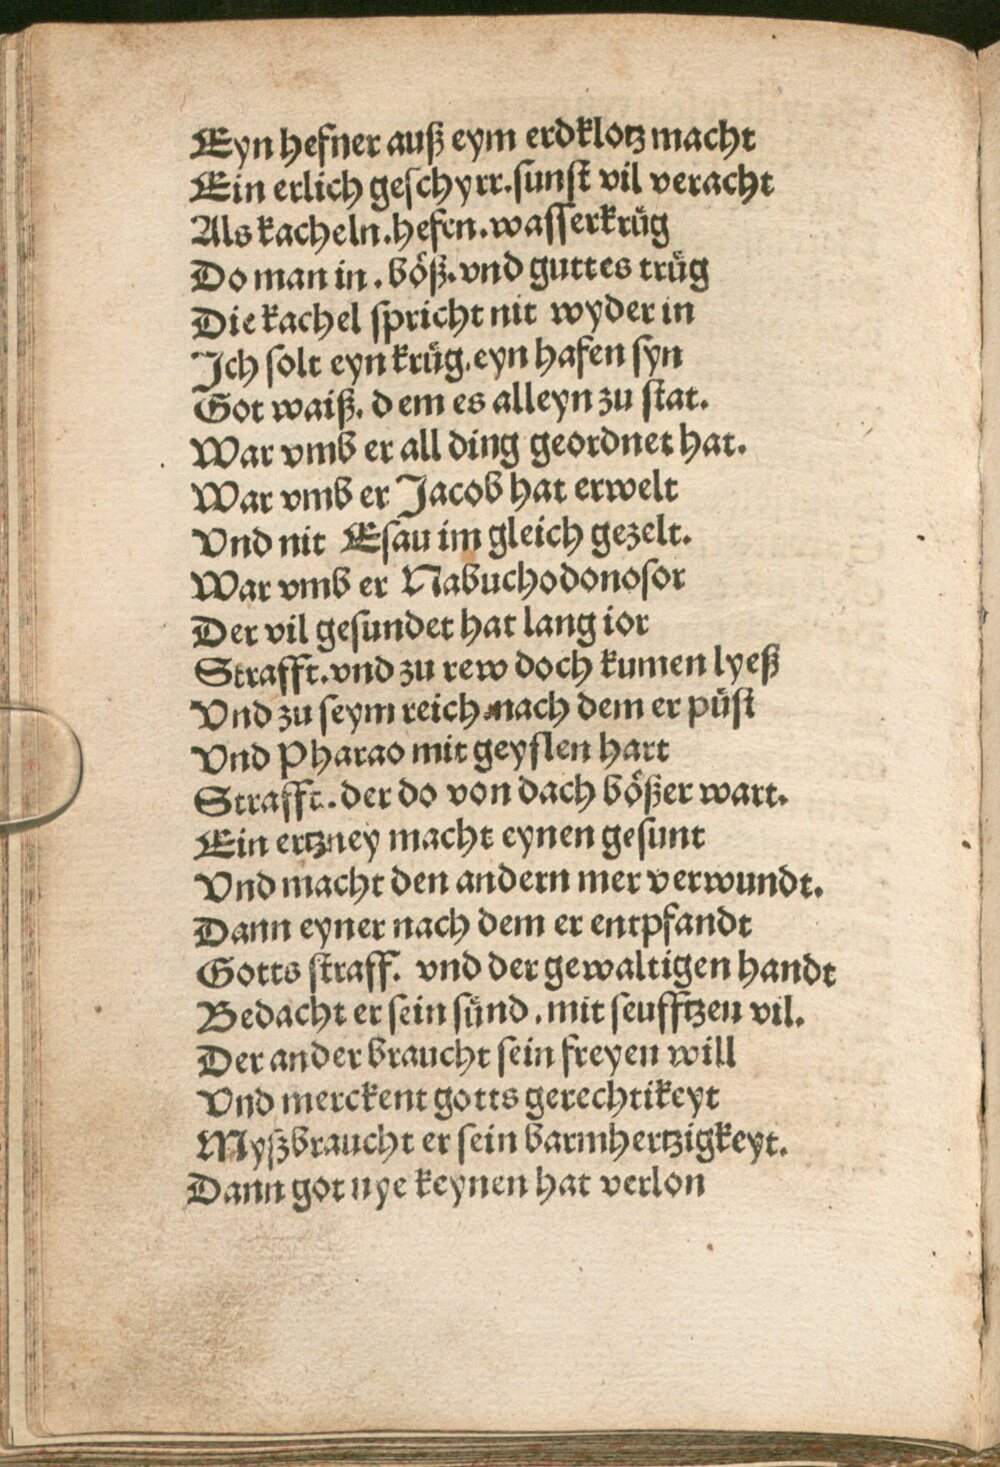 Eyn hefner auß eym erdklotz macht
Ein erlich geschyrr.sunst vil veracht
Als kacheln.hefen.wasserkrüg
Do man in.böß.vnd guttes trüg
Die kachel spricht nit wyder in
Ich solt eyn krüg.eyn hafen syn
Got waiß. dem es alleyn zu stat.
War vmb er all ding geordnet hat.
War vmb er Jacob hat erwelt
Vnd nit Esau im gleich gezelt.
War vmb er Nabuchodonosor
Der vil gesundet hat lang ior
Strafft.vnd zu rew doch kumen lyeß
Vnd zu seym reich.nach dem er püst
Vnd Pharao mit geyslen hart
Strafft.der do von dach bößer wart.
Ein ertzney macht eynen gesunt
Vnd macht den andern mer verwundt.
Dann eyner nach dem er entpfandt
Gotts straff. vnd der gewaltigen handt
Bedacht er sein sünd.mit seufftzen vil.
Der ander braucht sein freyen will
Vnd merckent gotts gerechtikeyt
Myßbraucht er sein barmhertzigkeyt.
Dann got nye keynen hat verlon